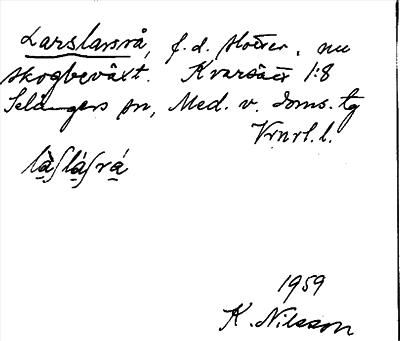 Larslarsrå, f.d. slåtter, nu
skogbeväxt. Kvarsätt 1:8
Selångers sn, Med. v. doms. tg
Vrnrl. l.
là̠ʃlá̠ʃrá̠
1959
K. Nilsson